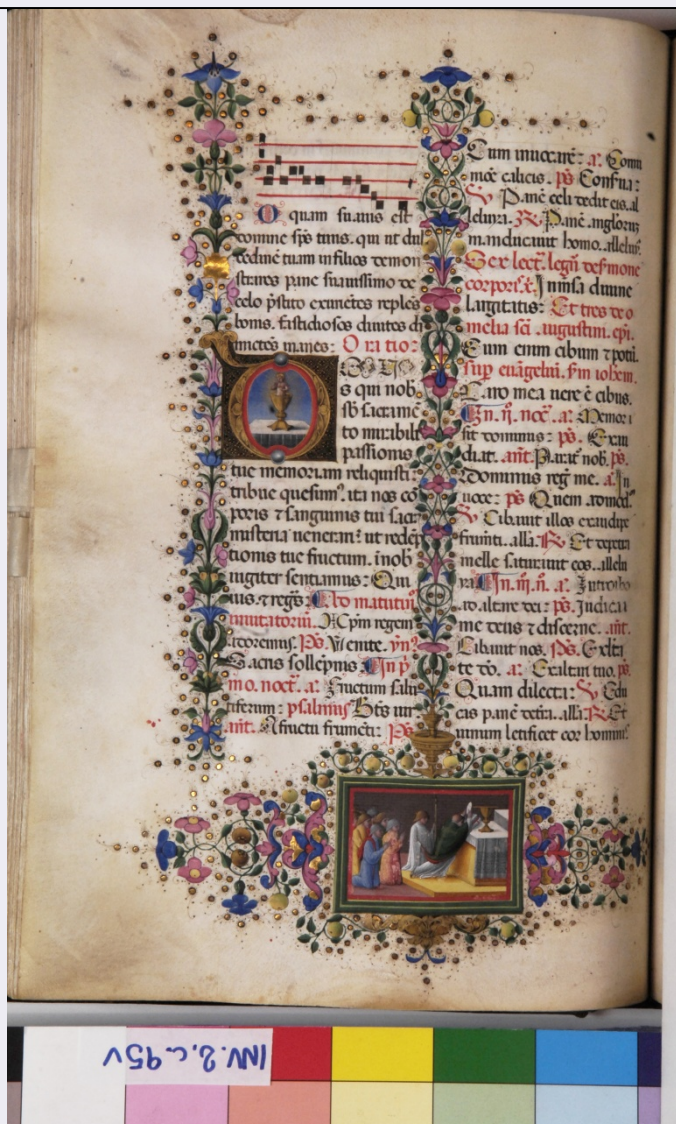 O quam suauis est
domine sps tuus. qui ut dul
cedinē tuam in filios demon
strares pane suauissimo de
celo prestito exurientes reples
bonis. fastidiosos diuites di
mictens inanes: Oratio:
s qui nob
sb sacramē
to mirabili
passionis
tue memoriam reliquisti:
tribue quesum9. ita nos cor
poris ⁊ sanguinis tui sacra
misteria uenerari: ut redēp
tionis tue fructum. in nob
iugiter sentiamus: Qui
uius. ⁊ regs: Ad matutinū
inuitatoriū. Xp̄m regem
adoremus. Ps. Venite. ẏn9
Sacris sollēpnis: In p
mo. noct̄. a: Fructum salu
tiferum: psalmus Bt̄s uir
ant̄. A fructu frumēti: Ps
Cum inuocarē: a: Comu
nioē calicis. ps Conserua:
V Panē celi dedit eis. al
leluia. R Panē anglorum
manducauit homo. alleluia.
Sex lect̄. legūt de smone
corporis. Inmēsa diuine
largitatis: Et tres de o
melia sc̄i augustini. epi.
Cum enim cibum ⁊ potū.
sup euāgeliū. sm iohēm.
Caro mea uere ē cibus.
In. ij. noct̄. a: Memor
sit dominus: ps. Exau
diat. ant̄. Parat nob. ps.
Dominus regt̄ me. a: In
uoce: ps Quem admod.
V Cibauit illos ex adipe
frumti. alla. R Et de petra
melle saturauit eos. allelu
ia. In. iij. n. a: Introibo
ad altare dei: ps. Iudica
me deus ⁊ discerne. ant̄.
Cibauit nos. Ps. Exlta
te deo. a: Exaltari tuo. ps.
Quam dilecta: V Edu
cas panē de tra. alla. R Et
uinum letificet cor hominis.
INV. 2, c. 95v